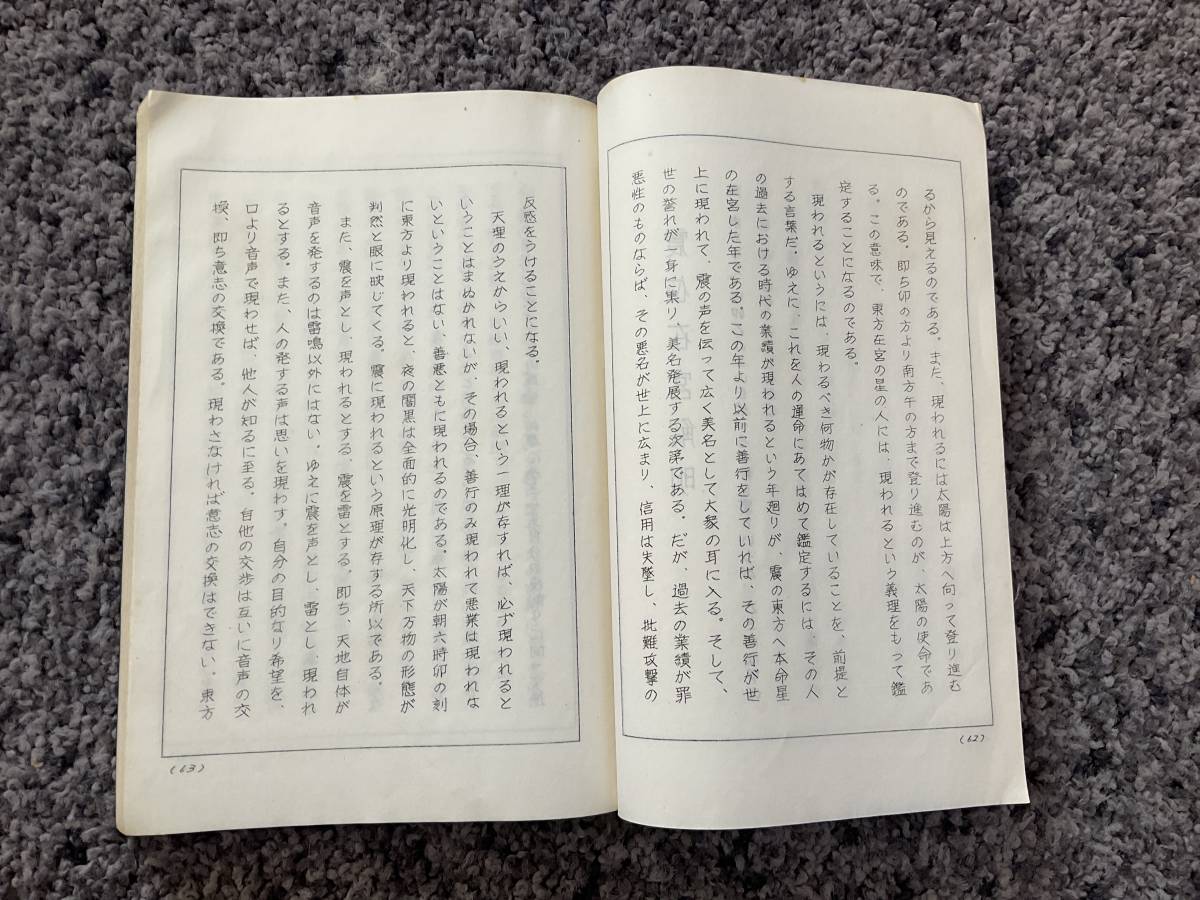 るから見えるのである。また、現われるには太陽は上方へ向って登り進む
のである。即ち卯の方より南方午の方まで登り進むのが、太陽の使命であ
る。この意味で、東方在宮の星の人には、現われるという義理をもって鑑
定することになるのである。
現われるというには、現わるべき何物かが存在していることを、前提と
する言葉だ。ゆえに、これを人の運命にあてはめて鑑定するには、その人
の過去における時代の業績が現われるという年廻りが、震の東方へ本命星
の在宮した年である。この年より以前に善行をしていれば、その善行が世
上に現われて、震の声を伝って広く美名として大衆の耳に入る。そして、
世の誉れが一身に集り、美名発展する次第である。だが、過去の業績が罪
悪性のものならば、その悪名が世上に広まり、信用は失墜し、批難攻撃の
(62)
反感をうけることになる。
天理のうえからいい、現われるという一理が存すれば、必ず現われると
いうことはまぬかれないが、その場合、善行のみ現われて悪業は現われな
いということはない、善悪ともに現われるのである。太陽が朝六時卯の刻
に東方より現われると、夜の闇黒は全面的に光明化し、天下万物の形態が
判然と眼に映じてくる。震に現われるという原理が存する所以である。
また、震を声とし、現われるとする。震を雷とする。即ち、天地自体が
音声を発するのは雷鳴以外にはない。ゆえに震を声とし、雷とし、現われ
るとする。また、人の発する声は思いを現わす。自分の目的なり希望を、
口より音声で現わせば、他人が知るに至る。自他の交渉は互いに音声の交
換、即ち意志の交換である。現わさなければ意志の交換はできない、東方
(63)